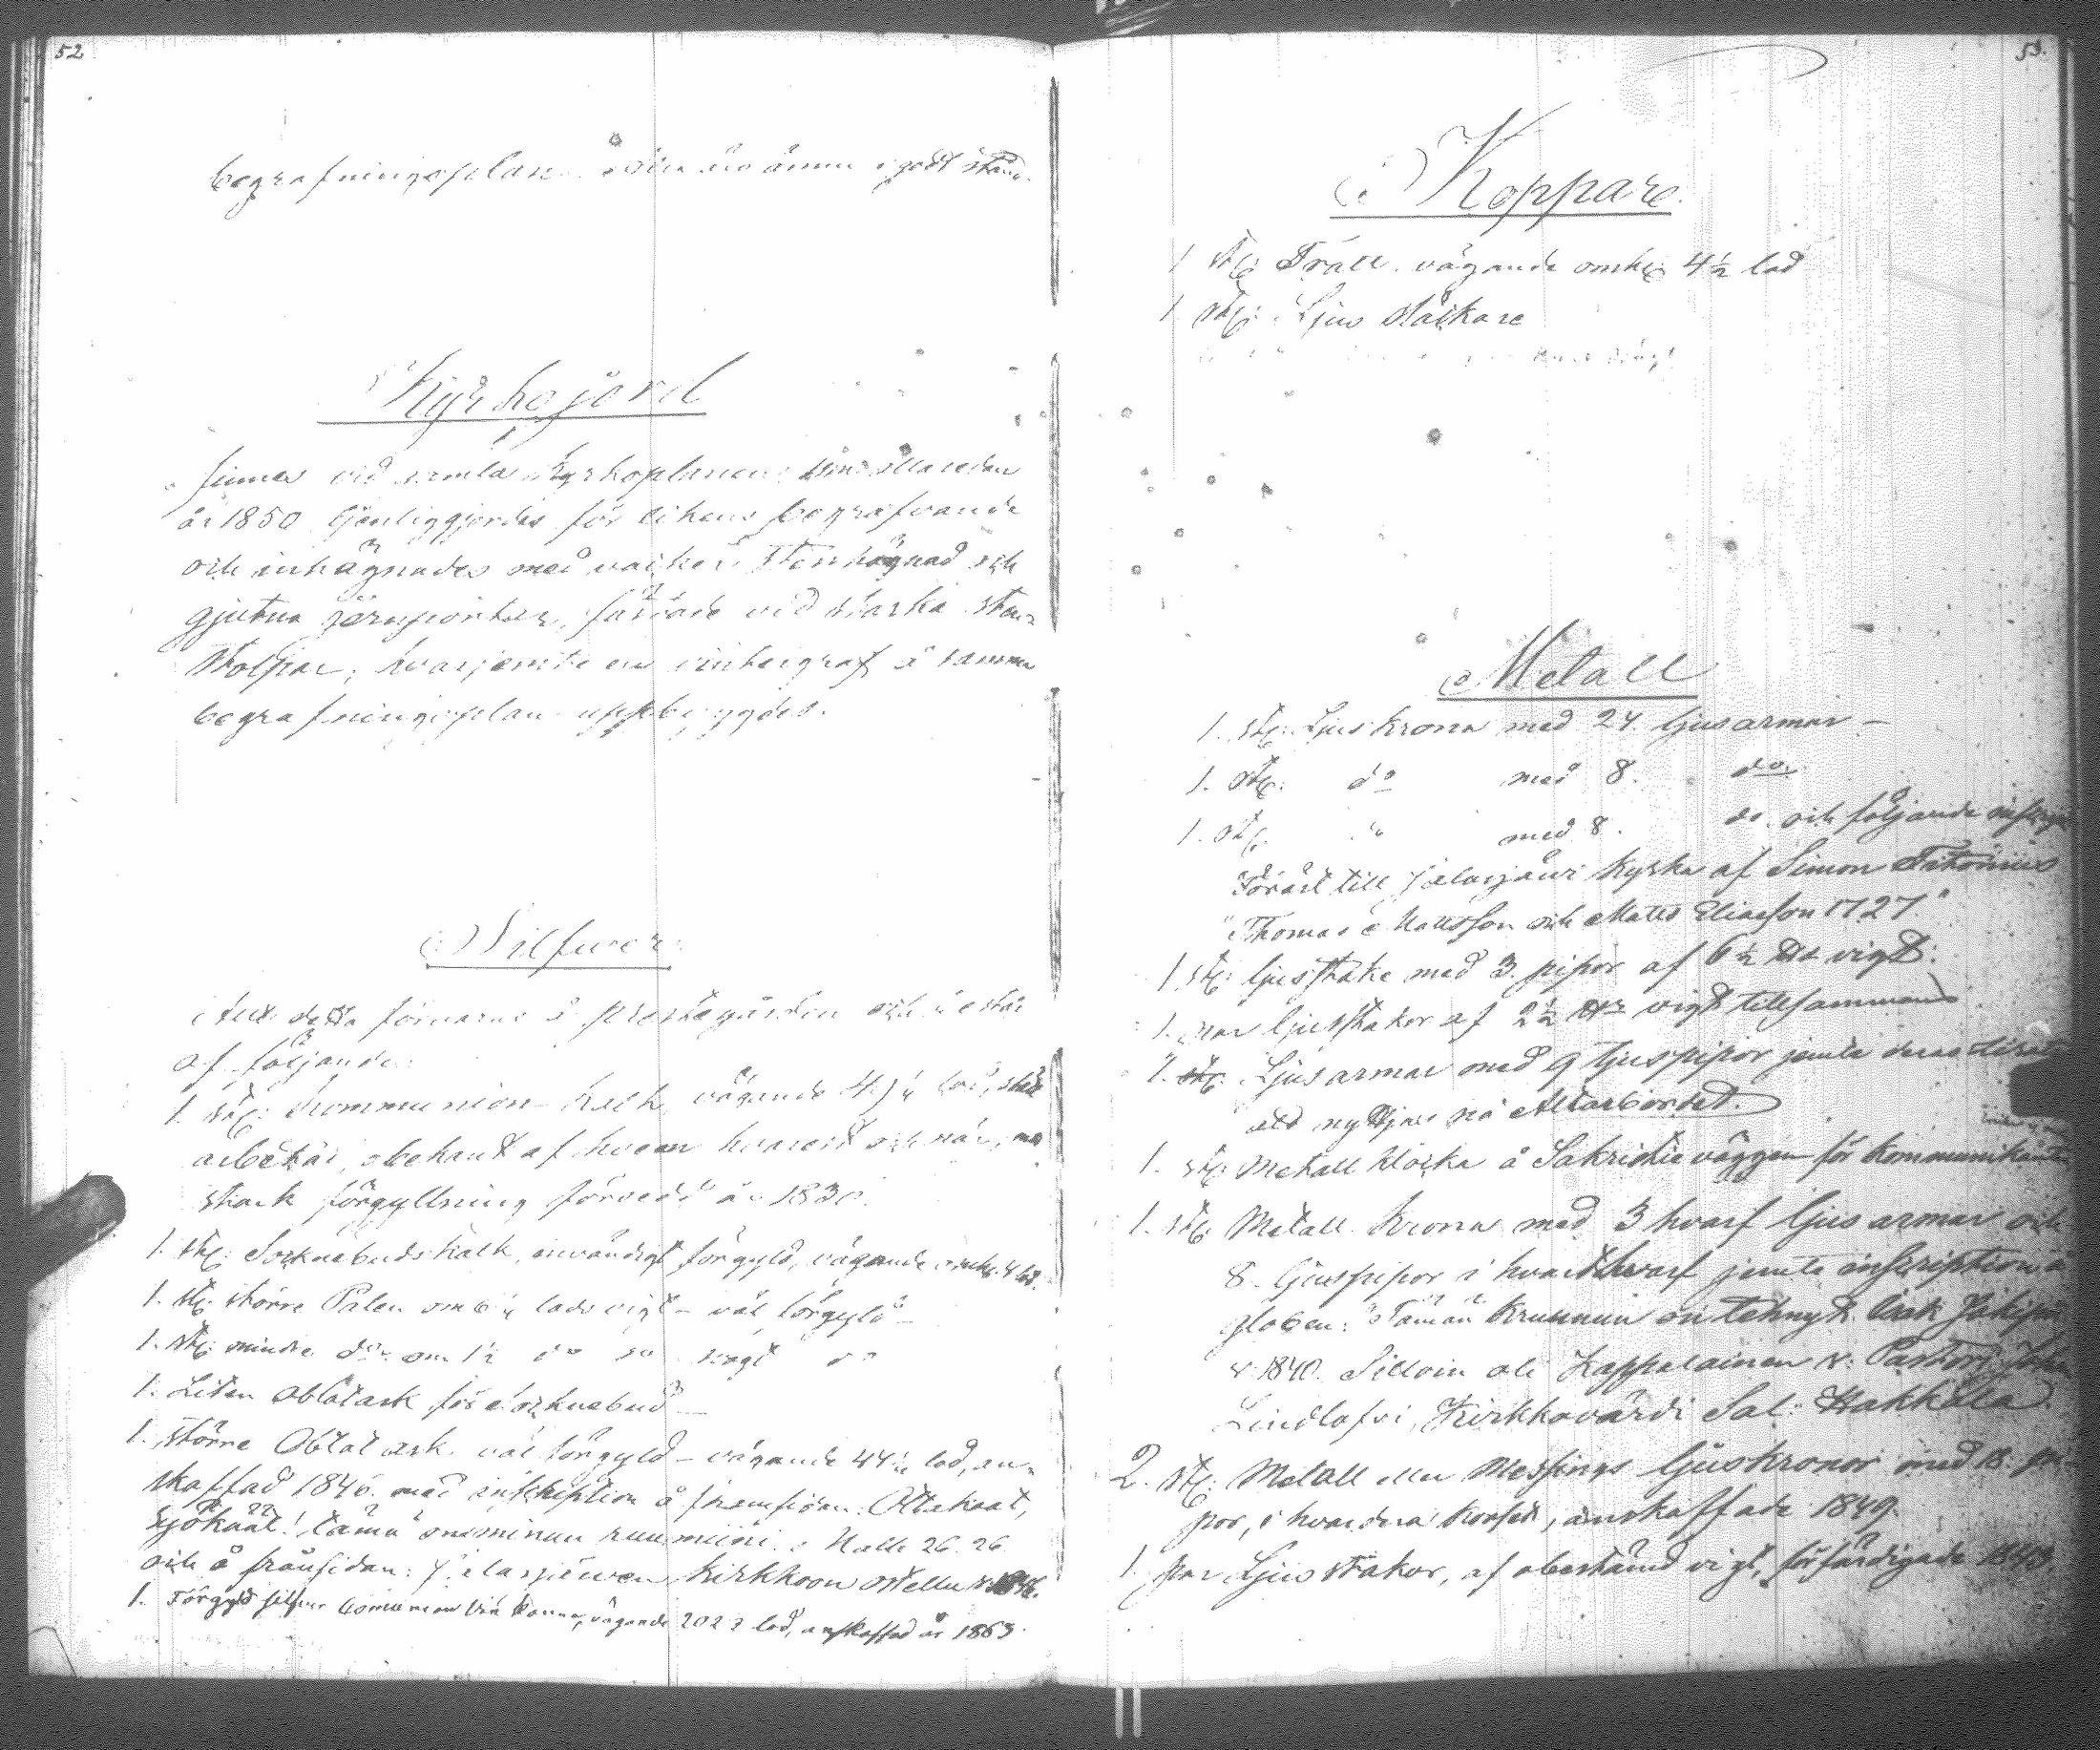 52
begrafningsplan ännu i godt stånd.
Kyrkojord
finnes vid gamla Kyrkoplanen som allaredan
år 1850 tjenliggjordes för likens begrafvande
och inhägnades med vacker Stenhägnad och
gjutna jernportar, fästade vid starka sten
Stolpar, hvarjemte en vintergraf å samma
begrafningsplan uppbyggdes.
Silfver.
Allt detta förvaras å prestegården och består
af följande:
1. st: Kommunion-Kalk, vägande lod,
arbetad, obekant af hvem hvarest och när, med
stark förgyllning försedd år 1830.
1. st: Socknebuds kalk, invändigt förgyld, vägande omkr. 4 lod.
1. st: större Paten om 6 ¼ lods vigt - väl förgyld -
1. st: mindre do om 1½ do do vigt do
1. Liten oblatask för Socknebud -
1. större Oblat ask. väl förgyld - vägande 44 ¼ lod, an-
skaffad 1846. med inskription å framsidan: Ottakaat,
Syökäät! tämä on minun ruumiini. Matth. 26. 26.
och å frånsidan: Jalasjärwen Kirkkoon ostettu v. 1846.
1. Förgyld silfver Comunion Vin kanna, vägande 202 ? lod, anskaffad år 1863.
53.
Koppare.
1 st: Fråtl. vägande omkr: 4½ lod
1. st: Ljus släckare
Metall
1. st: Ljus krona med 24. ljusarmar -
1. st: do med 8. do.
1. st: " med 8. do. och följande inskrip
"Förärt till Jalasjärvi Kyrka af Simon
"Thomas Mattsson och Matts Eliasson 1727."
1 st: ljusstake med 3. pipor af 6½ vigt:
1. par ljusstakar af 2½ vigt tillsammans
1. st: Ljusarmar med 9 ljuspipor jemte deras
att nyttjas på Altarbordet.
1. st: Metall klocka å Sakristie väggen för Kommunikanter
1. st: Metall Krona med 3 hvarf ljus armar och
8. ljuspipor i hvart hvarf jemte inskription å
globen: "Tämän Kruunun on tehnyt Isak
v. 1840. Silloin oli Kappalainen v: Pastori Joh
Lindlofvi, Kirkkovärdi Sal: Hakkola.
2. st: Metall eller Messings ljuskronor med 18. pi
por, i hvardera korset, anskaffade 1849.
1 par Ljus stakar, af obestämd vigt, förfärdigade